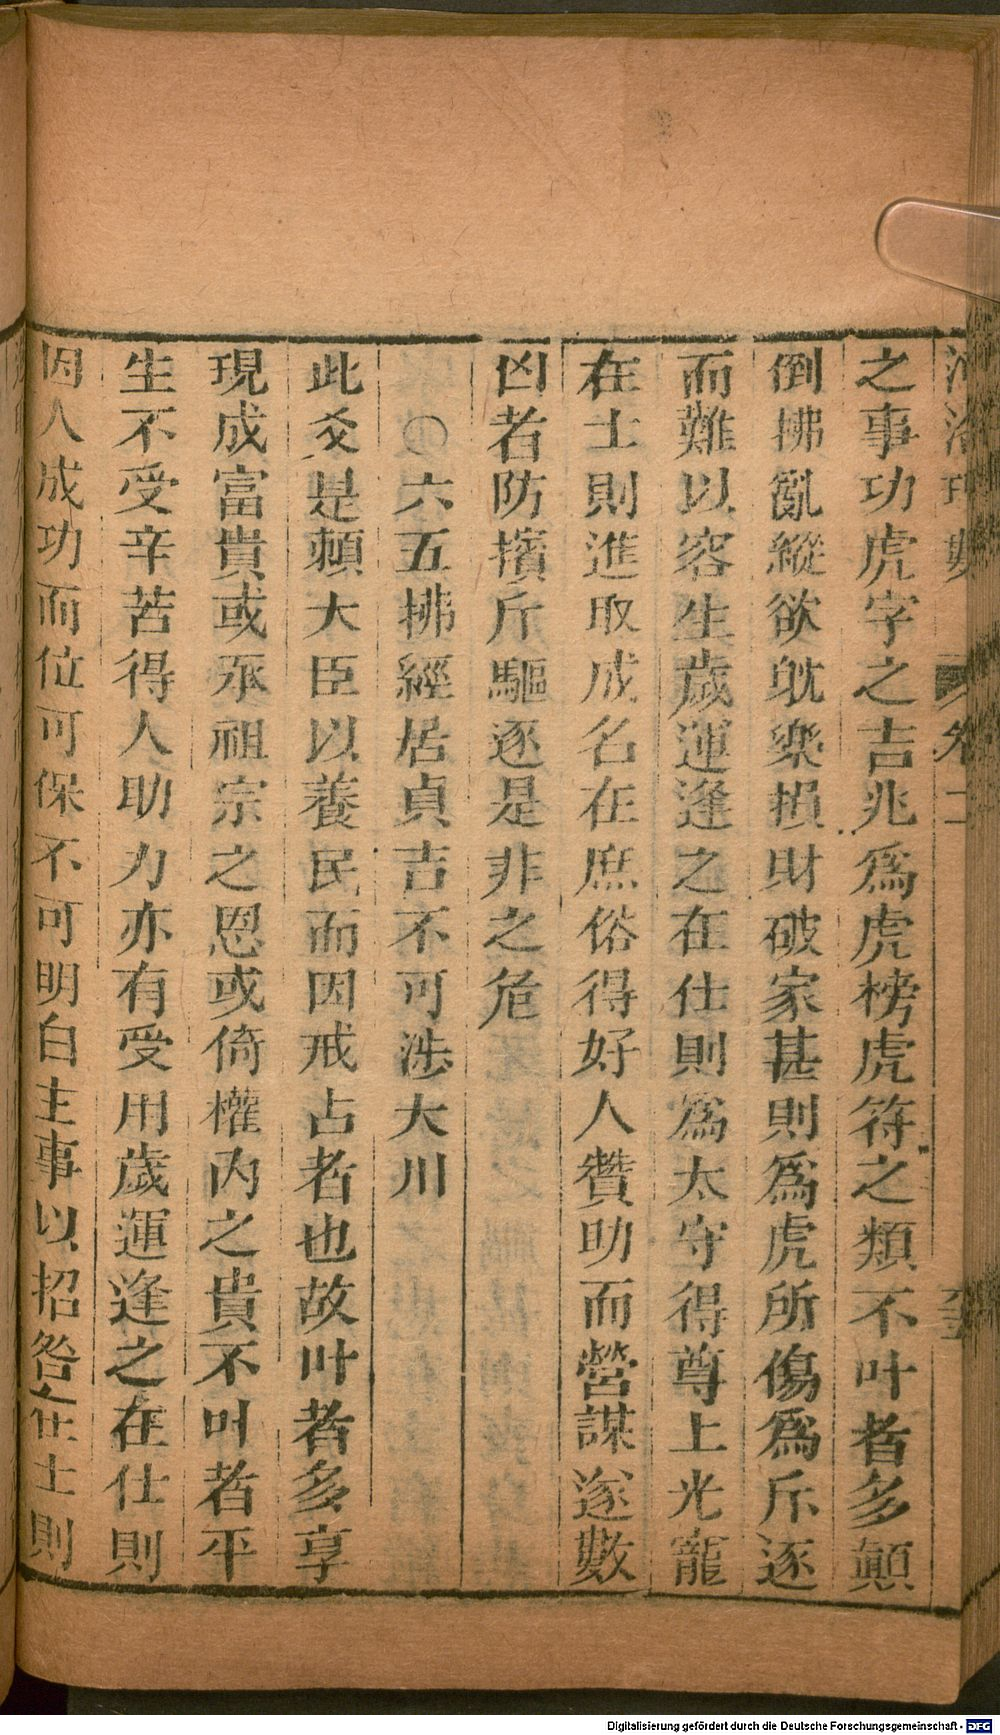 之事功虎字之吉兆爲虎榜虎符之類不叶者多顚
倒拂亂縱欲躭樂損財破家甚則爲虎所傷爲斥逐
而難以容生歲運逢之在仕則爲太守得尊上光寵
在士則進取成名在庶俗得好人贊助而營謀遂數
凶者防擯斥驅逐是非之危
〇六五拂經居貞吉不可涉大川
此爻是頼大臣以養民而因戒占者也故叶者多享
現成富貴或承祖宗之恩或倚權內之貴不叶者平
生不受辛苦得人助力亦有受用歲運逢之在仕則
因人成功而位可保不可明白主事以招咎在士則
Digitalisierung gefördert durch die Deutsche Forschungsgemeinschaft - DFG